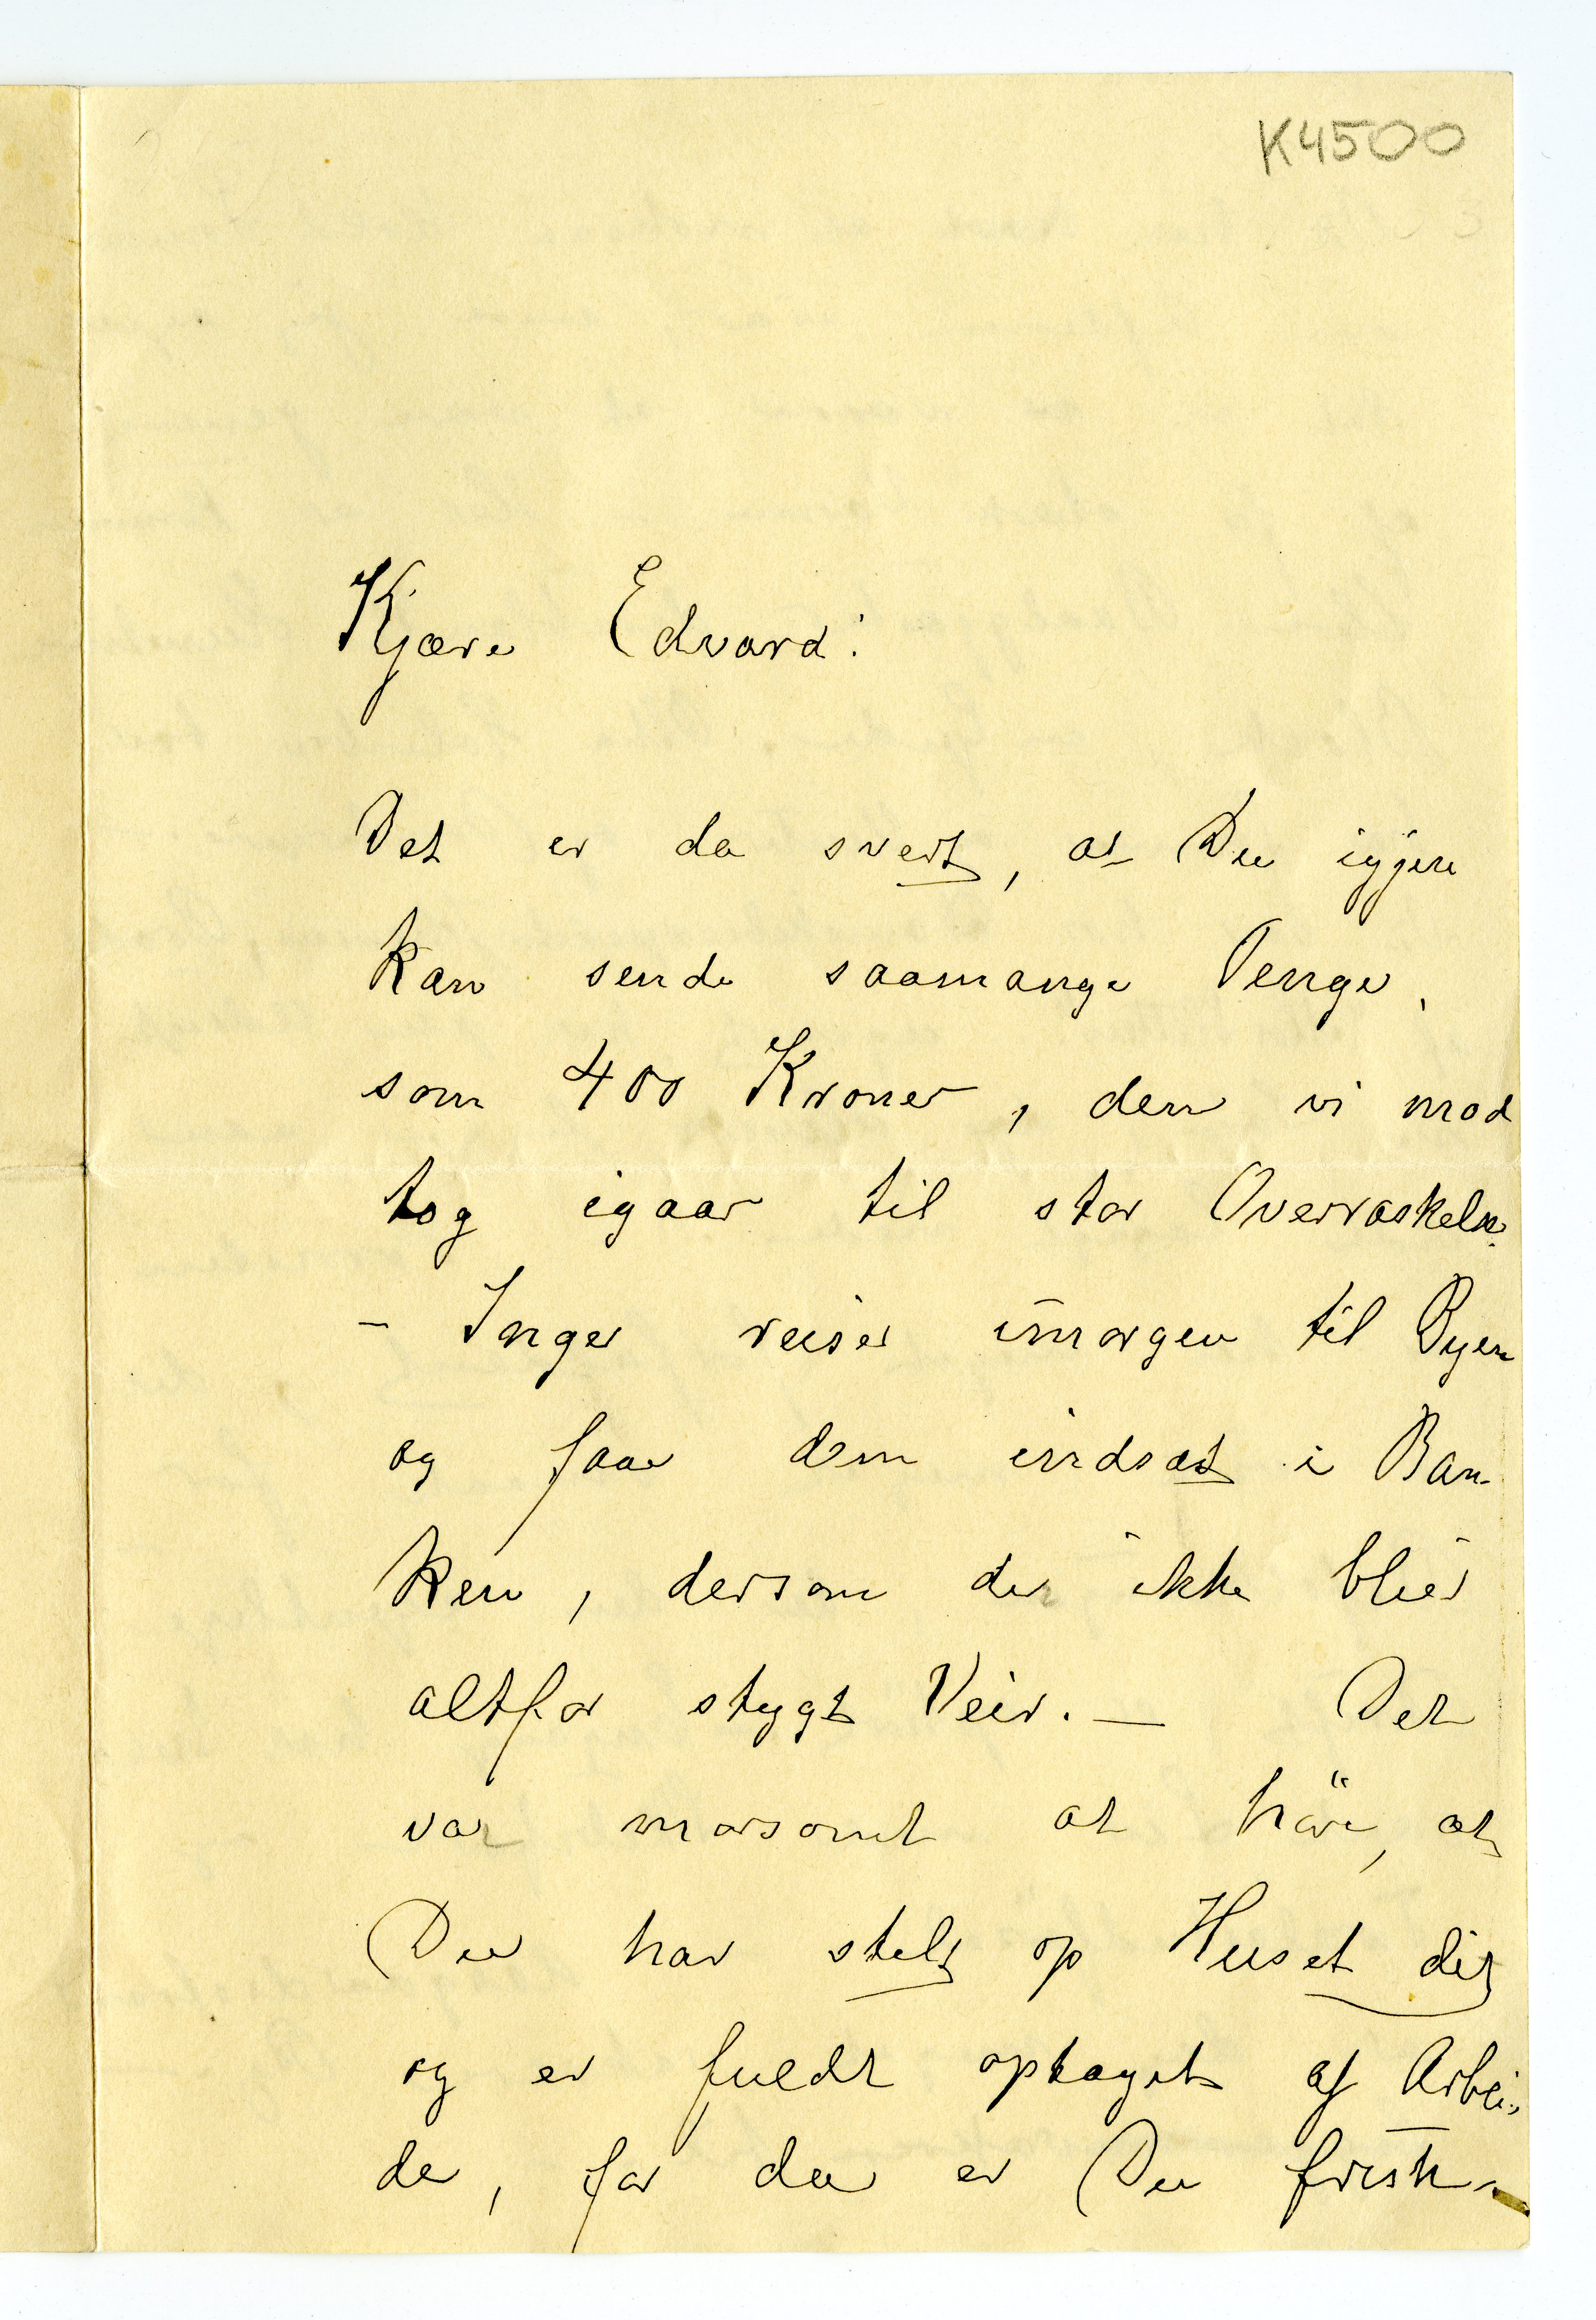 K4500
Kjære Edvard!
Det er da svert, at Du igjen
kan sende saamange Penge,
som 400 Kroner, dem vi mod
tog igaar til stor Overraskelse.
– Inger reiser imorgen til Byen
og faar dem indsat i Ban-
ken, dersom der ikke blier
altfor stygt Veir. — Det
var morsomt at høre, at
Du har stelt op Huset dit
og er fuldt optaget af Arbei-
de, for da er Du frisk. –